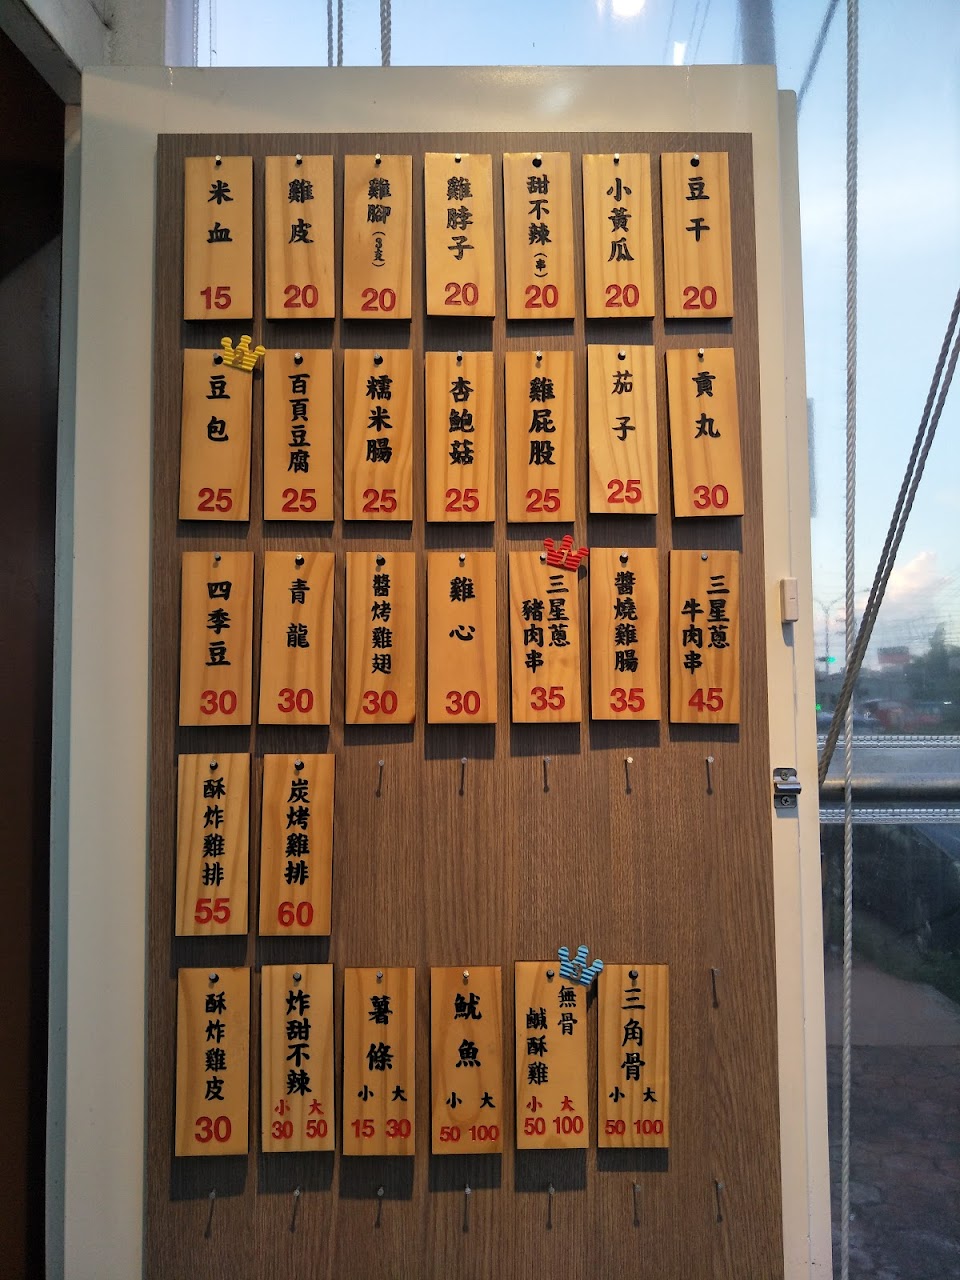 米血
15
雞皮
20
雞腳(2支)
20
雞脖子
20
甜不辣(串)
20
小黃瓜
20
豆干
20
豆包
25
百頁豆腐
25
糯米腸
25
杏鮑菇
25
雞屁股
25
茄子
25
貢丸
30
四季豆
30
青龍
30
醬烤雞翅
30
雞心
30
三星蔥
豬肉串
35
醬燒雞腸
35
三星蔥
牛肉串
45
酥炸雞排
55
炭烤雞排
60
酥炸雞皮
30
炸甜不辣
小 大
30 50
薯條
小 大
15 30
魷魚
小 大
50 100
無骨
鹹酥雞
小 大
50 100
三角骨
小 大
50 100